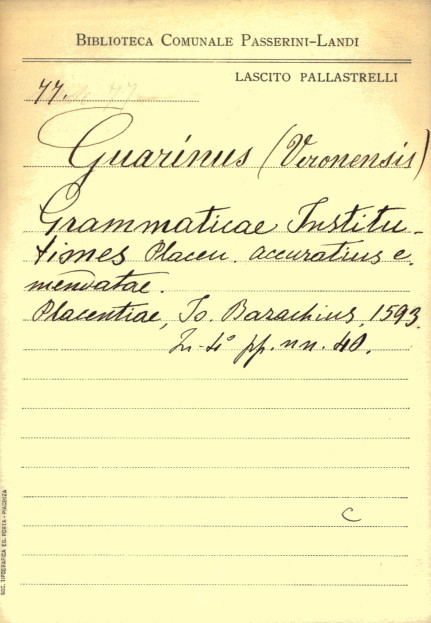 BIBLIOTECA COMUNALE PASSERINI-LANDI
LASCITO PALLASTRELLI
77.
Guarinus (Veronensis)
Grammaticae Institu-
tiones Placen. accuratius e-
mendatae.
Placentiae, Io. Bazachius, 1593.
In-4° pp. nn. 40.
C
SOC. TIPOGRAFICA ED. PORTA - PIACENZA